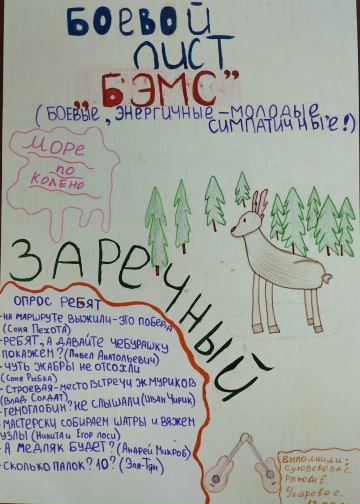 БОЕВОЙ
ЛИСТ
„БЭМС”
(БОЕВЫЕ, ЭНЕРГИЧНЫЕ – МОЛОДЫЕ,
СИМПАТИЧНЫЕ!)
МОРЕ
ПО
КОЛЕНО
ЗАРЕЧНЫЙ
ОПРОС РЕБЯТ
-НА МАРШРУТЕ ВЫЖИЛИ-ЭТО ПОБЕДА
(Соня Пехота)
-РЕБЯТ, А ДАВАЙТЕ ЧЕБУРАШКУ
ПОКАЖЕМ? (Павел Анатольевич)
-ЧУТЬ ЖАБРЫ НЕ ОТСОХЛИ
(Соня Рыбка)
-СТРОЕВАЯ-МЕСТО ВСТРЕЧИ ЖМУРИКОВ
(Влад Солдат)
-ГЕМОГЛОБИН? НЕ СЛЫШАЛИ (Иван Чирик)
-МАСТЕРСКИ СОБИРАЕМ ШАТРЫ И ВЯЖЕМ
УЗЛЫ (Никита и Егор Лоси)
-А МЕДЛЯК БУДЕТ? (Андрей Микров)
-СКОЛЬКО ПАЛОК? 10? (Эля-Тян)
ВЫПОЛНИЛИ: